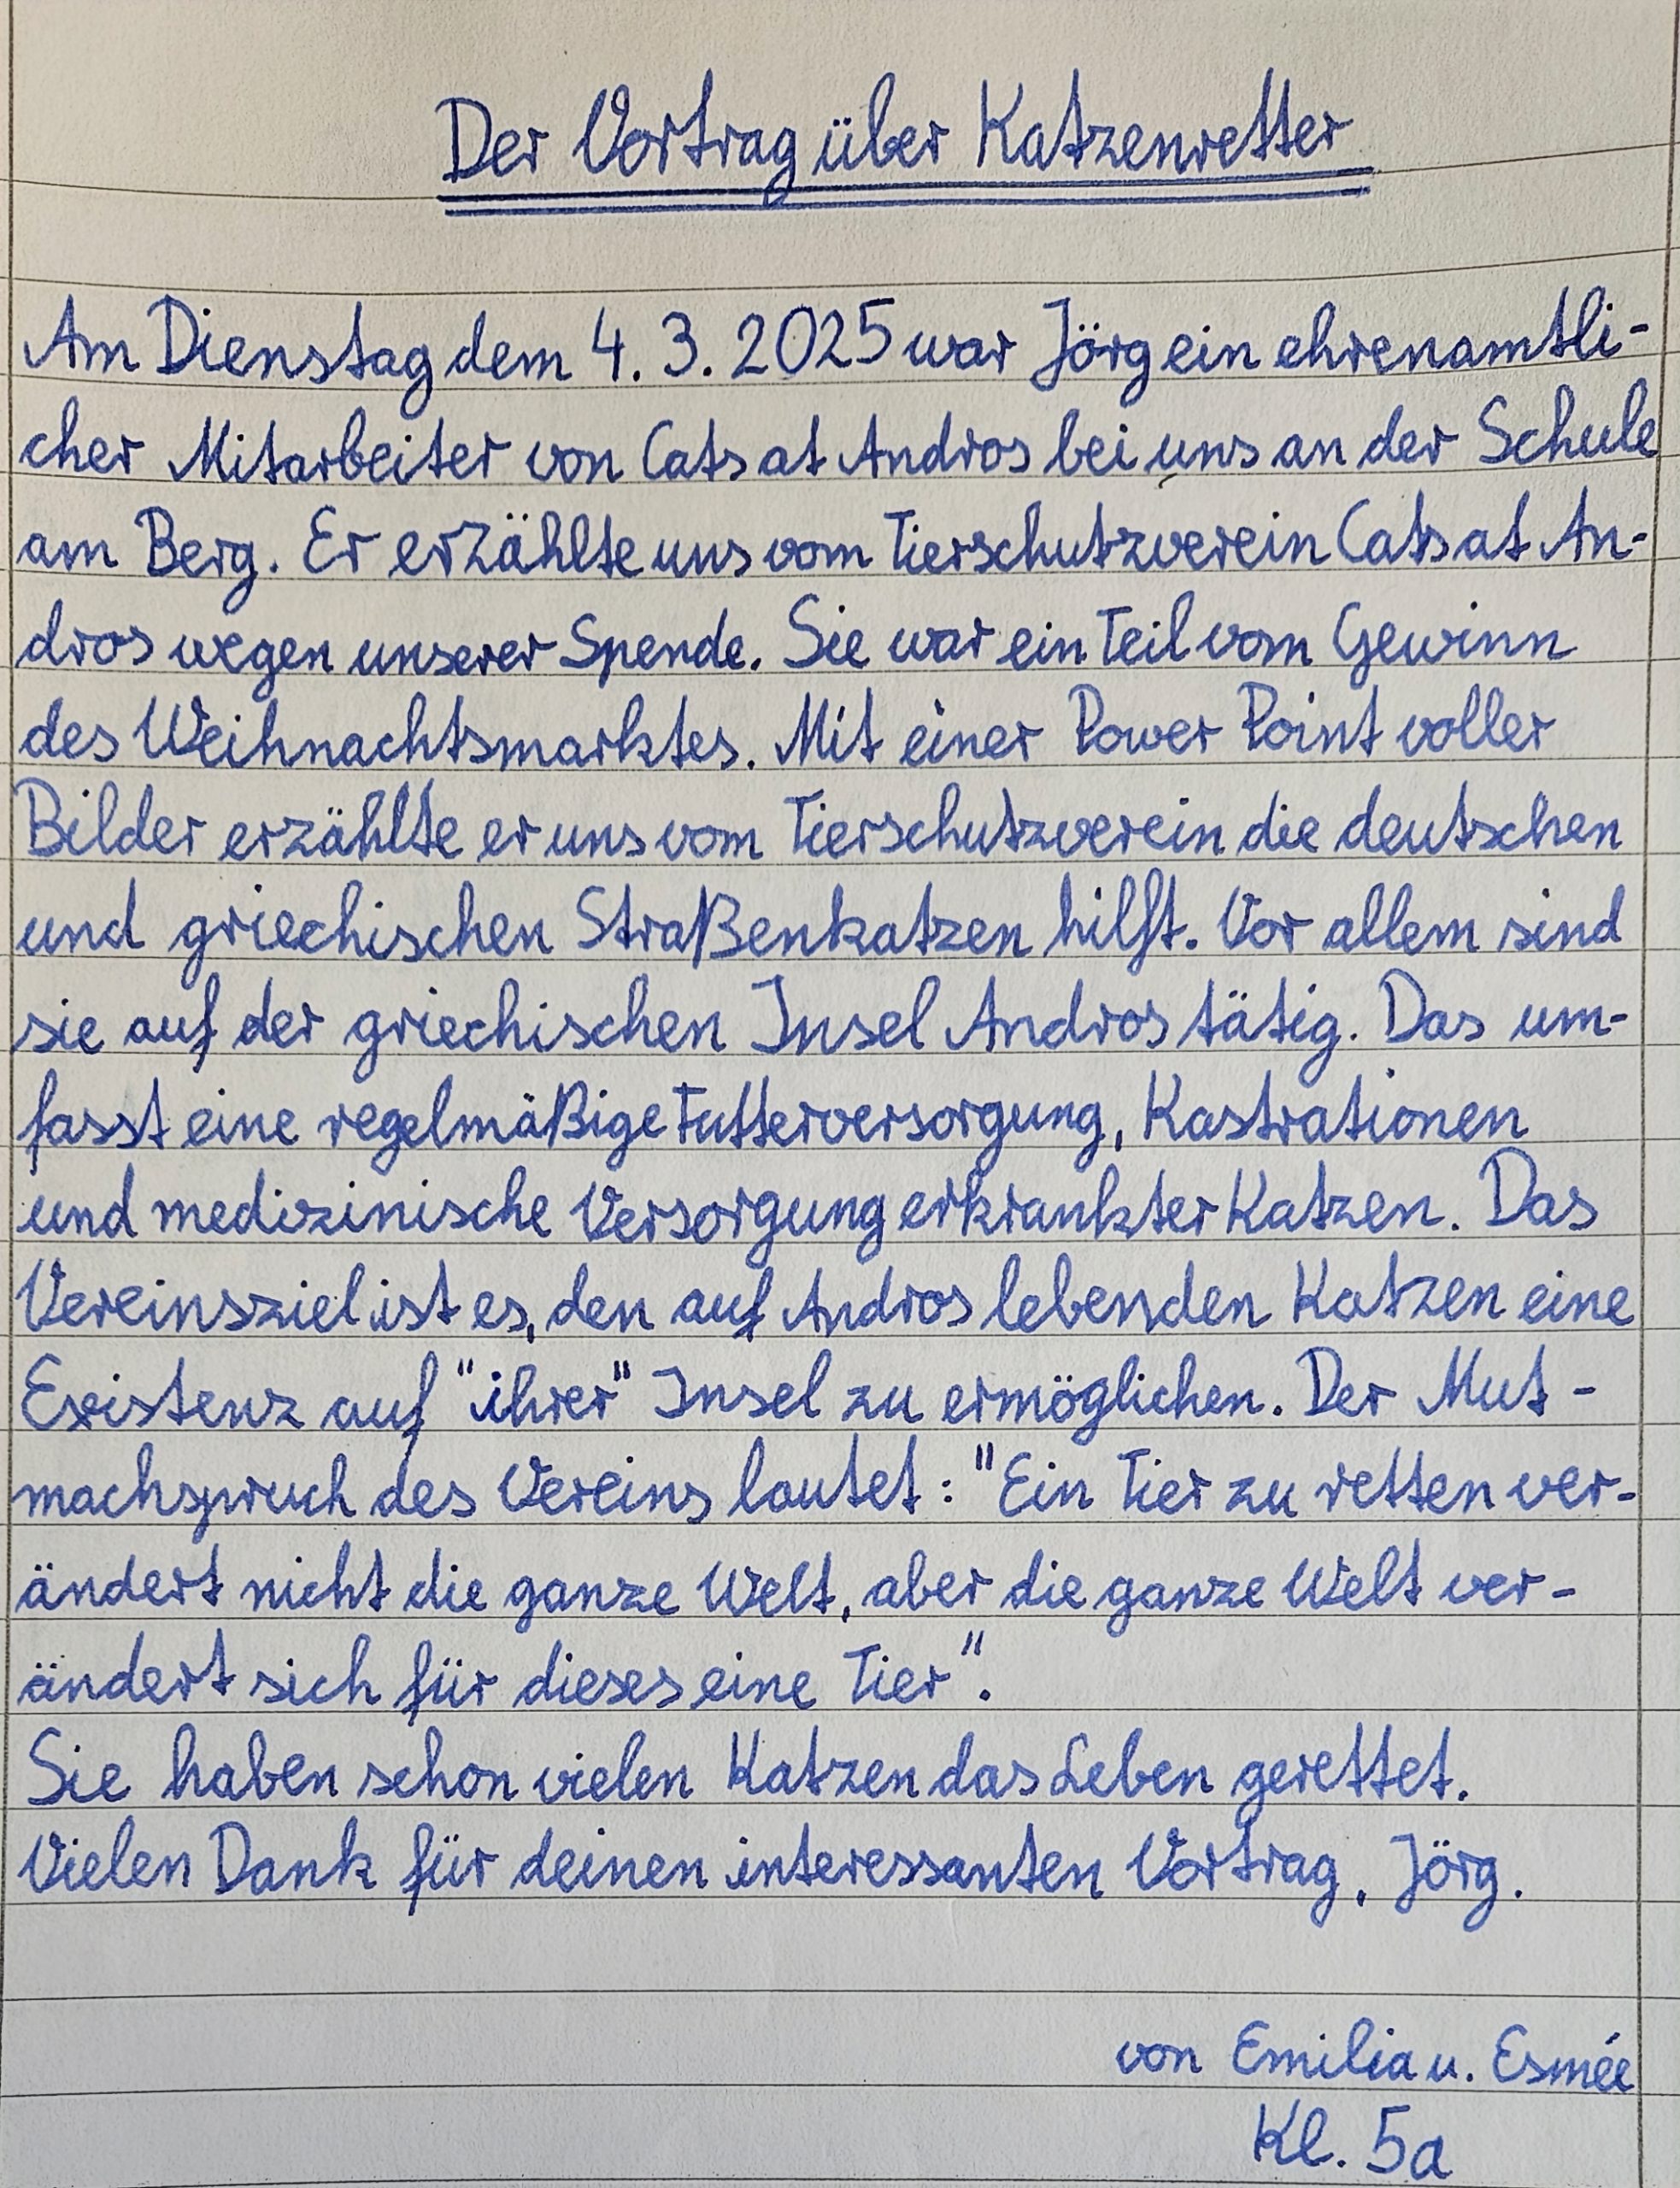 Der Vortrag über Katzenretter
Am Dienstag dem 4. 3. 2025 war Jörg ein ehrenamtli-
cher Mitarbeiter von Cats at Andros bei uns an der Schule
am Berg. Er erzählte uns vom Tierschutzverein Cats at An-
dros wegen unserer Spende. Sie war ein Teil vom Gewinn
des Weihnachtsmarktes. Mit einer Power Point voller
Bilder erzählte er uns vom Tierschutzverein die deutschen
und griechischen Straßenkatzen hilft. Vor allem sind
sie auf der griechischen Insel Andros tätig. Das um-
fasst eine regelmäßige Futterversorgung, Kastrationen
und medizinische Versorgung erkrankter Katzen. Das
Vereinsziel ist es, den auf Andros lebenden Katzen eine
Existenz auf "ihrer" Insel zu ermöglichen. Der Mut-
machspruch des Vereins lautet: "Ein Tier zu retten ver-
ändert nicht die ganze Welt, aber die ganze Welt ver-
ändert sich für dieses eine Tier".
Sie haben schon vielen Katzen das Leben gerettet.
Vielen Dank für deinen interessanten Vortrag, Jörg.
von Emilia u. Esmée
Kl. 5a